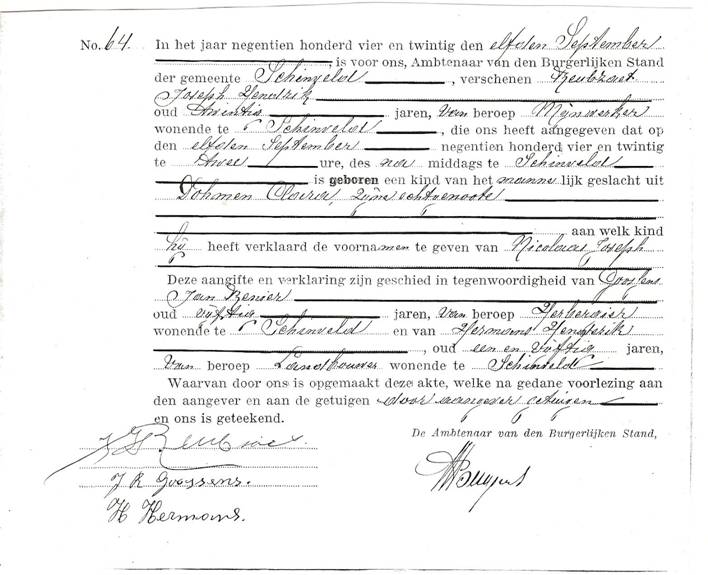 No. 64. In het jaar negentien honderd vier en twintig den elfden September
, is voor ons, Ambtenaar van den Burgerlijken Stand
der gemeente Schinveld , verschenen
Joseph Hendrik
oud twintig jaren, van beroep Mijnwerker
wonende te Schinveld , die ons heeft aangegeven dat op
den elfden September negentien honderd vier en twintig
te twee ure, des na middags te Schinveld
is geboren een kind van het mannelijk geslacht uit
Dohmen Clara, zijne echtgenoote
aan welk kind
hij heeft verklaard de voornamen te geven van Nicolaas Joseph
Deze aangifte en verklaring zijn geschied in tegenwoordigheid van Goossens
Jan Renier
oud vijftig jaren, van beroep Herbergier
wonende te Schinveld en van Hermans Hendrik
, oud een en vijftig jaren,
van beroep Landbouwer wonende te Schinveld
Waarvan door ons is opgemaakt deze akte, welke na gedane voorlezing aan
den aangever en aan de getuigen door aangever getuigen
en ons is geteekend.
De Ambtenaar van den Burgerlijken Stand,
J R Goossens.
H Hermans.